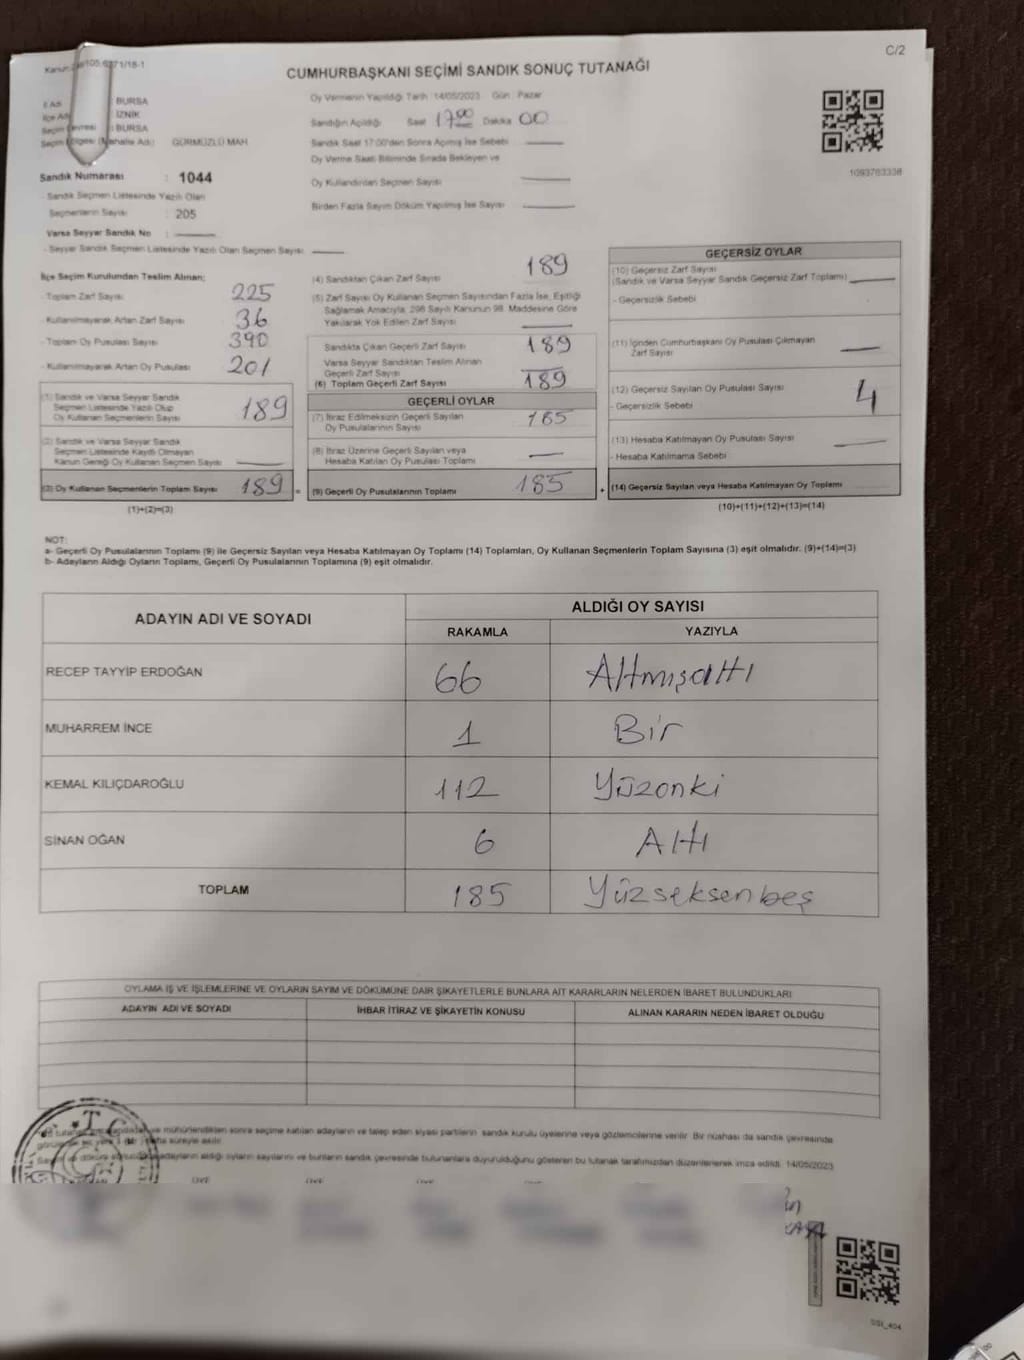 C/2
CUMHURBAŞKANI SEÇİMİ SANDIK SONUÇ TUTANAĞI
Oy Vermenin Yapıldığı Tarih : 14/05/2023 Gün : Pazar
: BURSA
: İZNİK
: BURSA
GÜRMÜZLÜ MAH.
Sandığın Açıldığı Saat 17:00 Dakika 00
Sandık Saat 17:00'den Sonra Açılmış İse Sebebi
Oy Verme Saati Bitiminde Sırada Bekleyen ve
Oy Kullandırılan Seçmen Sayısı
Birden Fazla Sayım Döküm Yapılmış İse Sayısı
1093763338
Sandık Numarası : 1044
- Sandık Seçmen Listesinde Yazılı Olan
Seçmenlerin Sayısı : 205
Varsa Seyyar Sandık No :
- Seyyar Sandık Seçmen Listesinde Yazılı Olan Seçmen Sayısı
İlçe Seçim Kurulundan Teslim Alınan;
- Toplam Zarf Sayısı 225
- Kullanılmayarak Artan Zarf Sayısı 36
- Toplam Oy Pusulası Sayısı 390
- Kullanılmayarak Artan Oy Pusulası 201
(1) Sandık ve Varsa Seyyar Sandık
Seçmen Listesinde Yazılı Olup
Oy Kullanan Seçmenlerin Sayısı 189
(2) Sandık ve Varsa Seyyar Sandık
Seçmen Listesinde Kayıtlı Olmayan
Kanun Gereği Oy Kullanan Seçmen Sayısı
(3) Oy Kullanan Seçmenlerin Toplam Sayısı 189 =
(1)+(2)=(3)
(4) Sandıktan Çıkan Zarf Sayısı 189
(5) Zarf Sayısı Oy Kullanan Seçmen Sayısından Fazla İse, Eşitliği
Sağlamak Amacıyla, 298 Sayılı Kanunun 98. Maddesine Göre
Yakılarak Yok Edilen Zarf Sayısı
Sandıkta Çıkan Geçerli Zarf Sayısı 189
Varsa Seyyar Sandıktan Teslim Alınan
Geçerli Zarf Sayısı
(6) Toplam Geçerli Zarf Sayısı 189
GEÇERLİ OYLAR
(7) İtiraz Edilmeksizin Geçerli Sayılan
Oy Pusulalarının Sayısı 185
(8) İtiraz Üzerine Geçerli Sayılan veya
Hesaba Katılan Oy Pusulası Toplamı
(9) Geçerli Oy Pusulalarının Toplamı 185 +
GEÇERSİZ OYLAR
(10) Geçersiz Zarf Sayısı
(Sandık ve Varsa Seyyar Sandık Geçersiz Zarf Toplamı)
- Geçersizlik Sebebi
(11) İçinden Cumhurbaşkanı Oy Pusulası Çıkmayan
Zarf Sayısı
(12) Geçersiz Sayılan Oy Pusulası Sayısı 4
- Geçersizlik Sebebi
(13) Hesaba Katılmayan Oy Pusulası Sayısı
- Hesaba Katılmama Sebebi
(14) Geçersiz Sayılan veya Hesaba Katılmayan Oy Toplamı
(10)+(11)+(12)+(13)=(14)
NOT:
a- Geçerli Oy Pusulalarının Toplamı (9) ile Geçersiz Sayılan veya Hesaba Katılmayan Oy Toplamı (14) Toplamları, Oy Kullanan Seçmenlerin Toplam Sayısına (3) eşit olmalıdır. (9)+(14)=(3)
b- Adayların Aldığı Oyların Toplamı, Geçerli Oy Pusulalarının Toplamına (9) eşit olmalıdır.
ADAYIN ADI VE SOYADI ALDIĞI OY SAYISI
RAKAMLA YAZIYLA
RECEP TAYYİP ERDOĞAN 66 Altmışaltı
MUHARREM İNCE 1 Bir
KEMAL KILIÇDAROĞLU 112 Yüzonki
SİNAN OĞAN 6 Altı
TOPLAM 185 Yüzseksenbeş
OYLAMA İŞ VE İŞLEMLERİNE VE OYLARIN SAYIM VE DÖKÜMÜNE DAİR ŞİKAYETLERLE BUNLARA AİT KARARLARIN NELERDEN İBARET BULUNDUKLARI
ADAYIN ADI VE SOYADI İHBAR İTİRAZ VE ŞİKAYETİN KONUSU ALINAN KARARIN NEDEN İBARET OLDUĞU
mühürlendikten sonra seçime katılan adayların ve talep eden siyasi partilerin sandık kurulu üyelerine veya gözlemcilerine verilir. Bir nüshası da sandık çevresinde
adayların aldığı oyların sayılarını ve bunların sandık çevresinde bulunanlara duyurulduğunu gösteren bu tutanak tarafımızdan düzenlenerek imza edildi. 14/05/2023
T.C.